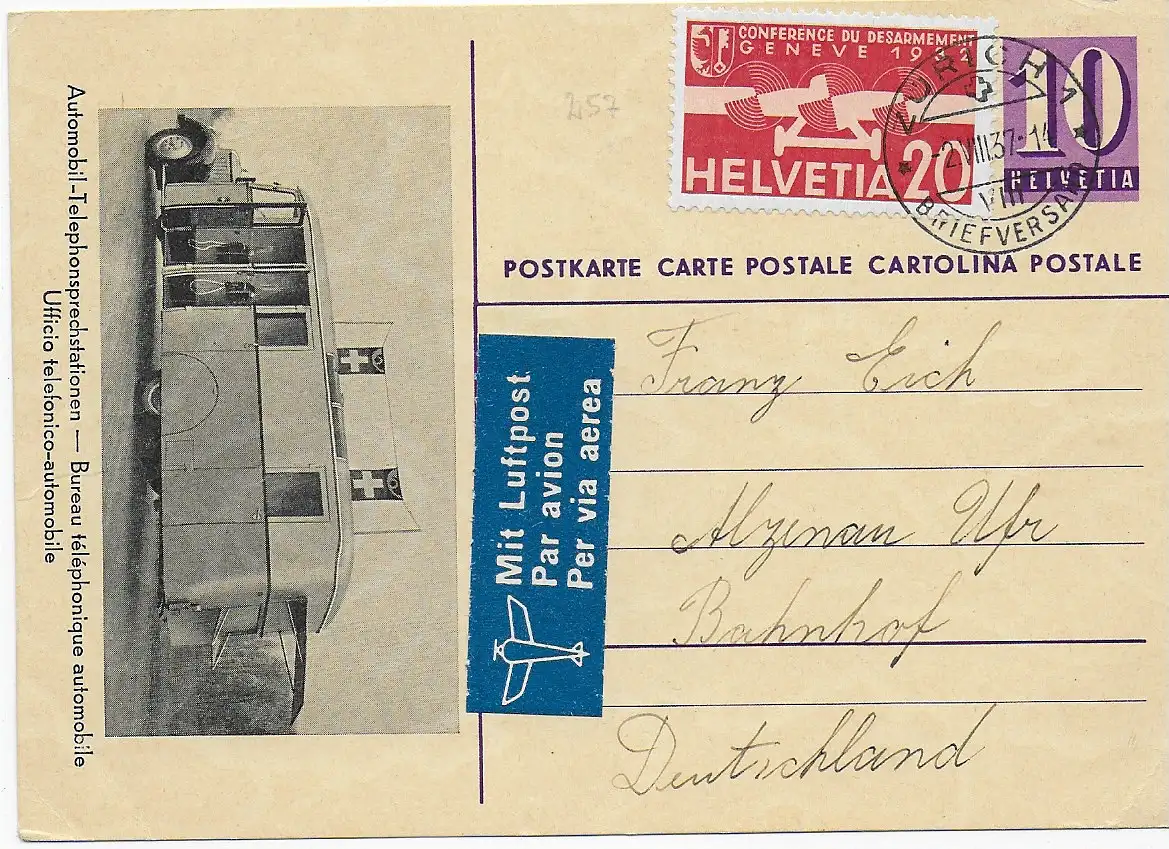 Automobil-Telephonsprechstationen — Bureau téléphonique automobile
Ufficio telefonico-automobile
257
CONFERENCE DU DESARMEMENT
GENEVE 1932
HELVETIA 20
10
HELVETIA
ZÜRICH 1
-2.VIII.37-14
VIII
BRIEFVERSAND
POSTKARTE CARTE POSTALE CARTOLINA POSTALE
Mit Luftpost
Par avion
Per via aerea
Franz Eich
Alzenau Ufr
Bahnhof
Deutschland